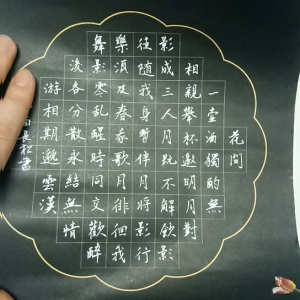 花間
一壺酒獨酌無
相親舉杯邀明月對
影成三人月既不解飲影
徒隨我身暫伴月將影行
樂須及春我歌月徘徊我
舞影零亂醒時同交歡醉
後各分散永結無情
游相期邈雲漢
松書